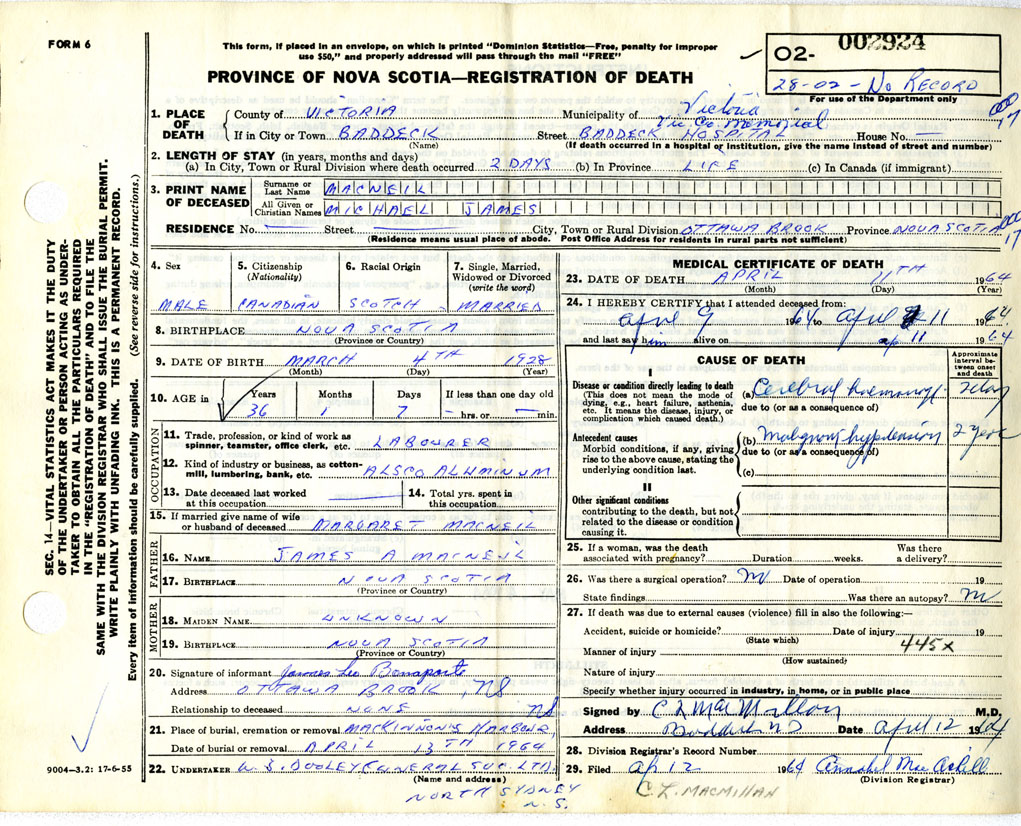 FORM 6
This form, if placed in an envelope, on which is printed "Dominion Statistics—Free, penalty for improper
use $50," and properly addressed will pass through the mail "FREE"
PROVINCE OF NOVA SCOTIA—REGISTRATION OF DEATH
02- 002924
28-02-No RECORD
For use of the Department only
1. PLACE OF DEATH
County of VICTORIA Municipality of Victoria
If in City or Town BADDECK Street Vic Co. Memorial BADDECK HOSPITAL House No. —
(Name) (If death occurred in a hospital or institution, give the name instead of street and number)
2. LENGTH OF STAY (in years, months and days)
(a) In City, Town or Rural Division where death occurred 2 DAYS (b) In Province LIFE (c) In Canada (if immigrant)
3. PRINT NAME OF DECEASED
Surname or Last Name MACNEIL
All Given or Christian Names MICHAEL JAMES
RESIDENCE No. — Street — City, Town or Rural Division OTTAWA BROOK Province NOVA SCOTIA
(Residence means usual place of abode. Post Office Address for residents in rural parts not sufficient)
4. Sex MALE
5. Citizenship (Nationality) CANADIAN
6. Racial Origin SCOTCH
7. Single, Married, Widowed or Divorced (write the word) MARRIED
8. BIRTHPLACE NOVA SCOTIA
(Province or Country)
9. DATE OF BIRTH MARCH 4TH 1928
(Month) (Day) (Year)
10. AGE in Years 36 Months 1 Days 7 If less than one day old — hrs. or — min.
OCCUPATION
11. Trade, profession, or kind of work as spinner, teamster, office clerk, etc. LABOURER
12. Kind of industry or business, as cotton-mill, lumbering, bank, etc. ALSCO ALUMINUM
13. Date deceased last worked at this occupation
14. Total yrs. spent in this occupation
15. If married give name of wife or husband of deceased MARGARET MACNEIL
FATHER
16. NAME JAMES A MACNEIL
17. BIRTHPLACE NOVA SCOTIA
(Province or Country)
MOTHER
18. MAIDEN NAME UNKNOWN
19. BIRTHPLACE NOVA SCOTIA
(Province or Country)
20. Signature of informant James Leo Bonaparte
Address OTTAWA BROOK, NS
Relationship to deceased NONE
21. Place of burial, cremation or removal MACKINNON'S HARBOUR, NS
Date of burial or removal APRIL 13TH 1964
22. UNDERTAKER W. J. DOOLEY FUNERAL SVC. LTD.
(Name and address)
NORTH SYDNEY
N.S.
MEDICAL CERTIFICATE OF DEATH
23. DATE OF DEATH APRIL 11TH 1964
(Month) (Day) (Year)
24. I HEREBY CERTIFY that I attended deceased from:
April 9 1964 to April 11 1964
and last saw him alive on ap 11 1964
CAUSE OF DEATH
Approximate interval between onset and death
I
Disease or condition directly leading to death
(This does not mean the mode of dying, e.g., heart failure, asthenia, etc. It means the disease, injury, or complication which caused death.)
(a) Cerebral 2 day
due to (or as a consequence of)
Antecedent causes
Morbid conditions, if any, giving rise to the above cause, stating the underlying condition last.
(b) Malignant hypertension 2 year
due to (or as a consequence of)
(c)
II
Other significant conditions
contributing to the death, but not related to the disease or condition causing it.
25. If a woman, was the death associated with pregnancy? Duration weeks. Was there a delivery?
26. Was there a surgical operation? Date of operation 19
State findings Was there an autopsy?
27. If death was due to external causes (violence) fill in also the following:—
Accident, suicide or homicide? Date of injury 19
(State which)
445X
Manner of injury
(How sustained)
Nature of injury
Specify whether injury occurred in industry, in home, or in public place
Signed by C L MacMillan M.D.
Address Baddeck NS Date April 12 1964
28. Division Registrar's Record Number
29. Filed Ap 12 1964 Annabel
(Division Registrar)
C.L. MACMILLAN
SEC. 14—VITAL STATISTICS ACT MAKES IT THE DUTY
OF THE UNDERTAKER OR PERSON ACTING AS UNDER-
TAKER TO OBTAIN ALL THE PARTICULARS REQUIRED
IN THE "REGISTRATION OF DEATH" AND TO FILE THE
SAME WITH THE DIVISION REGISTRAR WHO SHALL ISSUE THE BURIAL PERMIT.
WRITE PLAINLY WITH UNFADING INK. THIS IS A PERMANENT RECORD.
Every item of information should be carefully supplied. (See reverse side for instructions.)
9004-3.2: 17-6-55